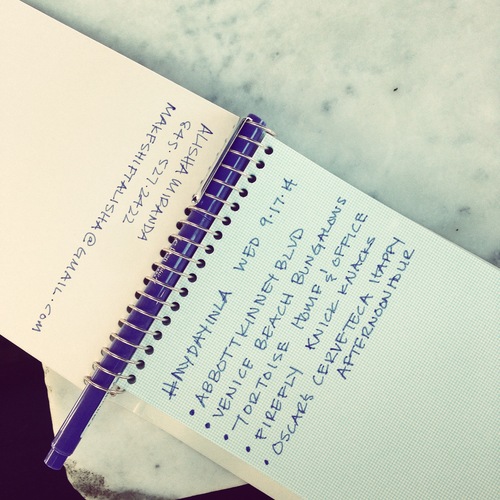 ALISHA WIDANDA
845.527.2422
MAKESHIFTALISHA@GMAIL.COM
#MYDAYINLA WED 9.17.14
• ABBOTT KINNEY BLVD
• VENICE BEACH BUNGALOWS
• TORTOISE HOME & OFFICE
• FIREFLY KNICK KNACKS
• OSCARS CERVETECA HAPPY
AFTERNOON HOUR